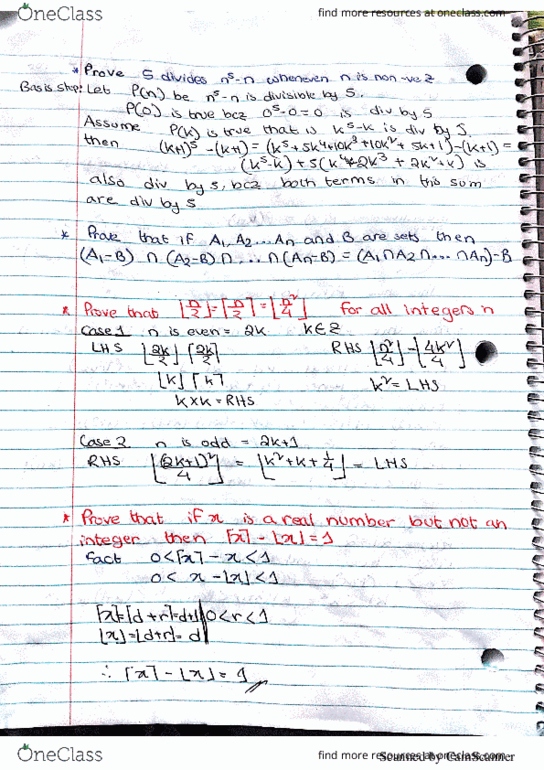 OneClass
find more resources at oneclass.com
* Prove 5 divides n⁵-n whenever n is non -ve Z
Basis step: Let P(n) be n⁵-n is divisible by 5.
P(0) is true bcz 0⁵-0=0 is div by 5
Assume P(k) is true that is k⁵-k is div by 5,
then (k+1)⁵ -(k+1) = (k⁵+5k⁴+10k³+10k²+5k+1)-(k+1) =
(k⁵-k) + 5(k⁴+2k³ + 2k²+k) is
also div by 5, bcz both terms in this sum
are div by 5
* Prove that if A₁, A₂...An and B are sets then
(A₁-B) ∩ (A₂-B) ∩ ... ∩ (An-B) = (A₁∩A₂∩... ∩An)-B
* Prove that ⌊n/2⌋ ⌈n/2⌉ = ⌊n²/4⌋ for all integers n
Case 1 n is even = 2k k∈Z
LHS ⌊2k/2⌋ ⌈2k/2⌉ RHS ⌊n²/4⌋ - ⌊4k²/4⌋
⌊k⌋ ⌈k⌉ k² = LHS
k×k = RHS
Case 2 n is odd = 2k+1
RHS ⌊(2k+1)²/4⌋ = ⌊k²+k+1/4⌋ = LHS
* Prove that if x is a real number but not an
integer then ⌈x⌉ - ⌊x⌋ = 1
fact 0<⌈x⌉ - x <1
0< x -⌊x⌋ <1
⌈x⌉=⌈d+r⌉=d+1 0<r<1
⌊x⌋=⌊d+r⌋= d
∴ ⌈x⌉ - ⌊x⌋ = 1
OneClass
find more resources at oneclass.com
Scanned by CamScanner